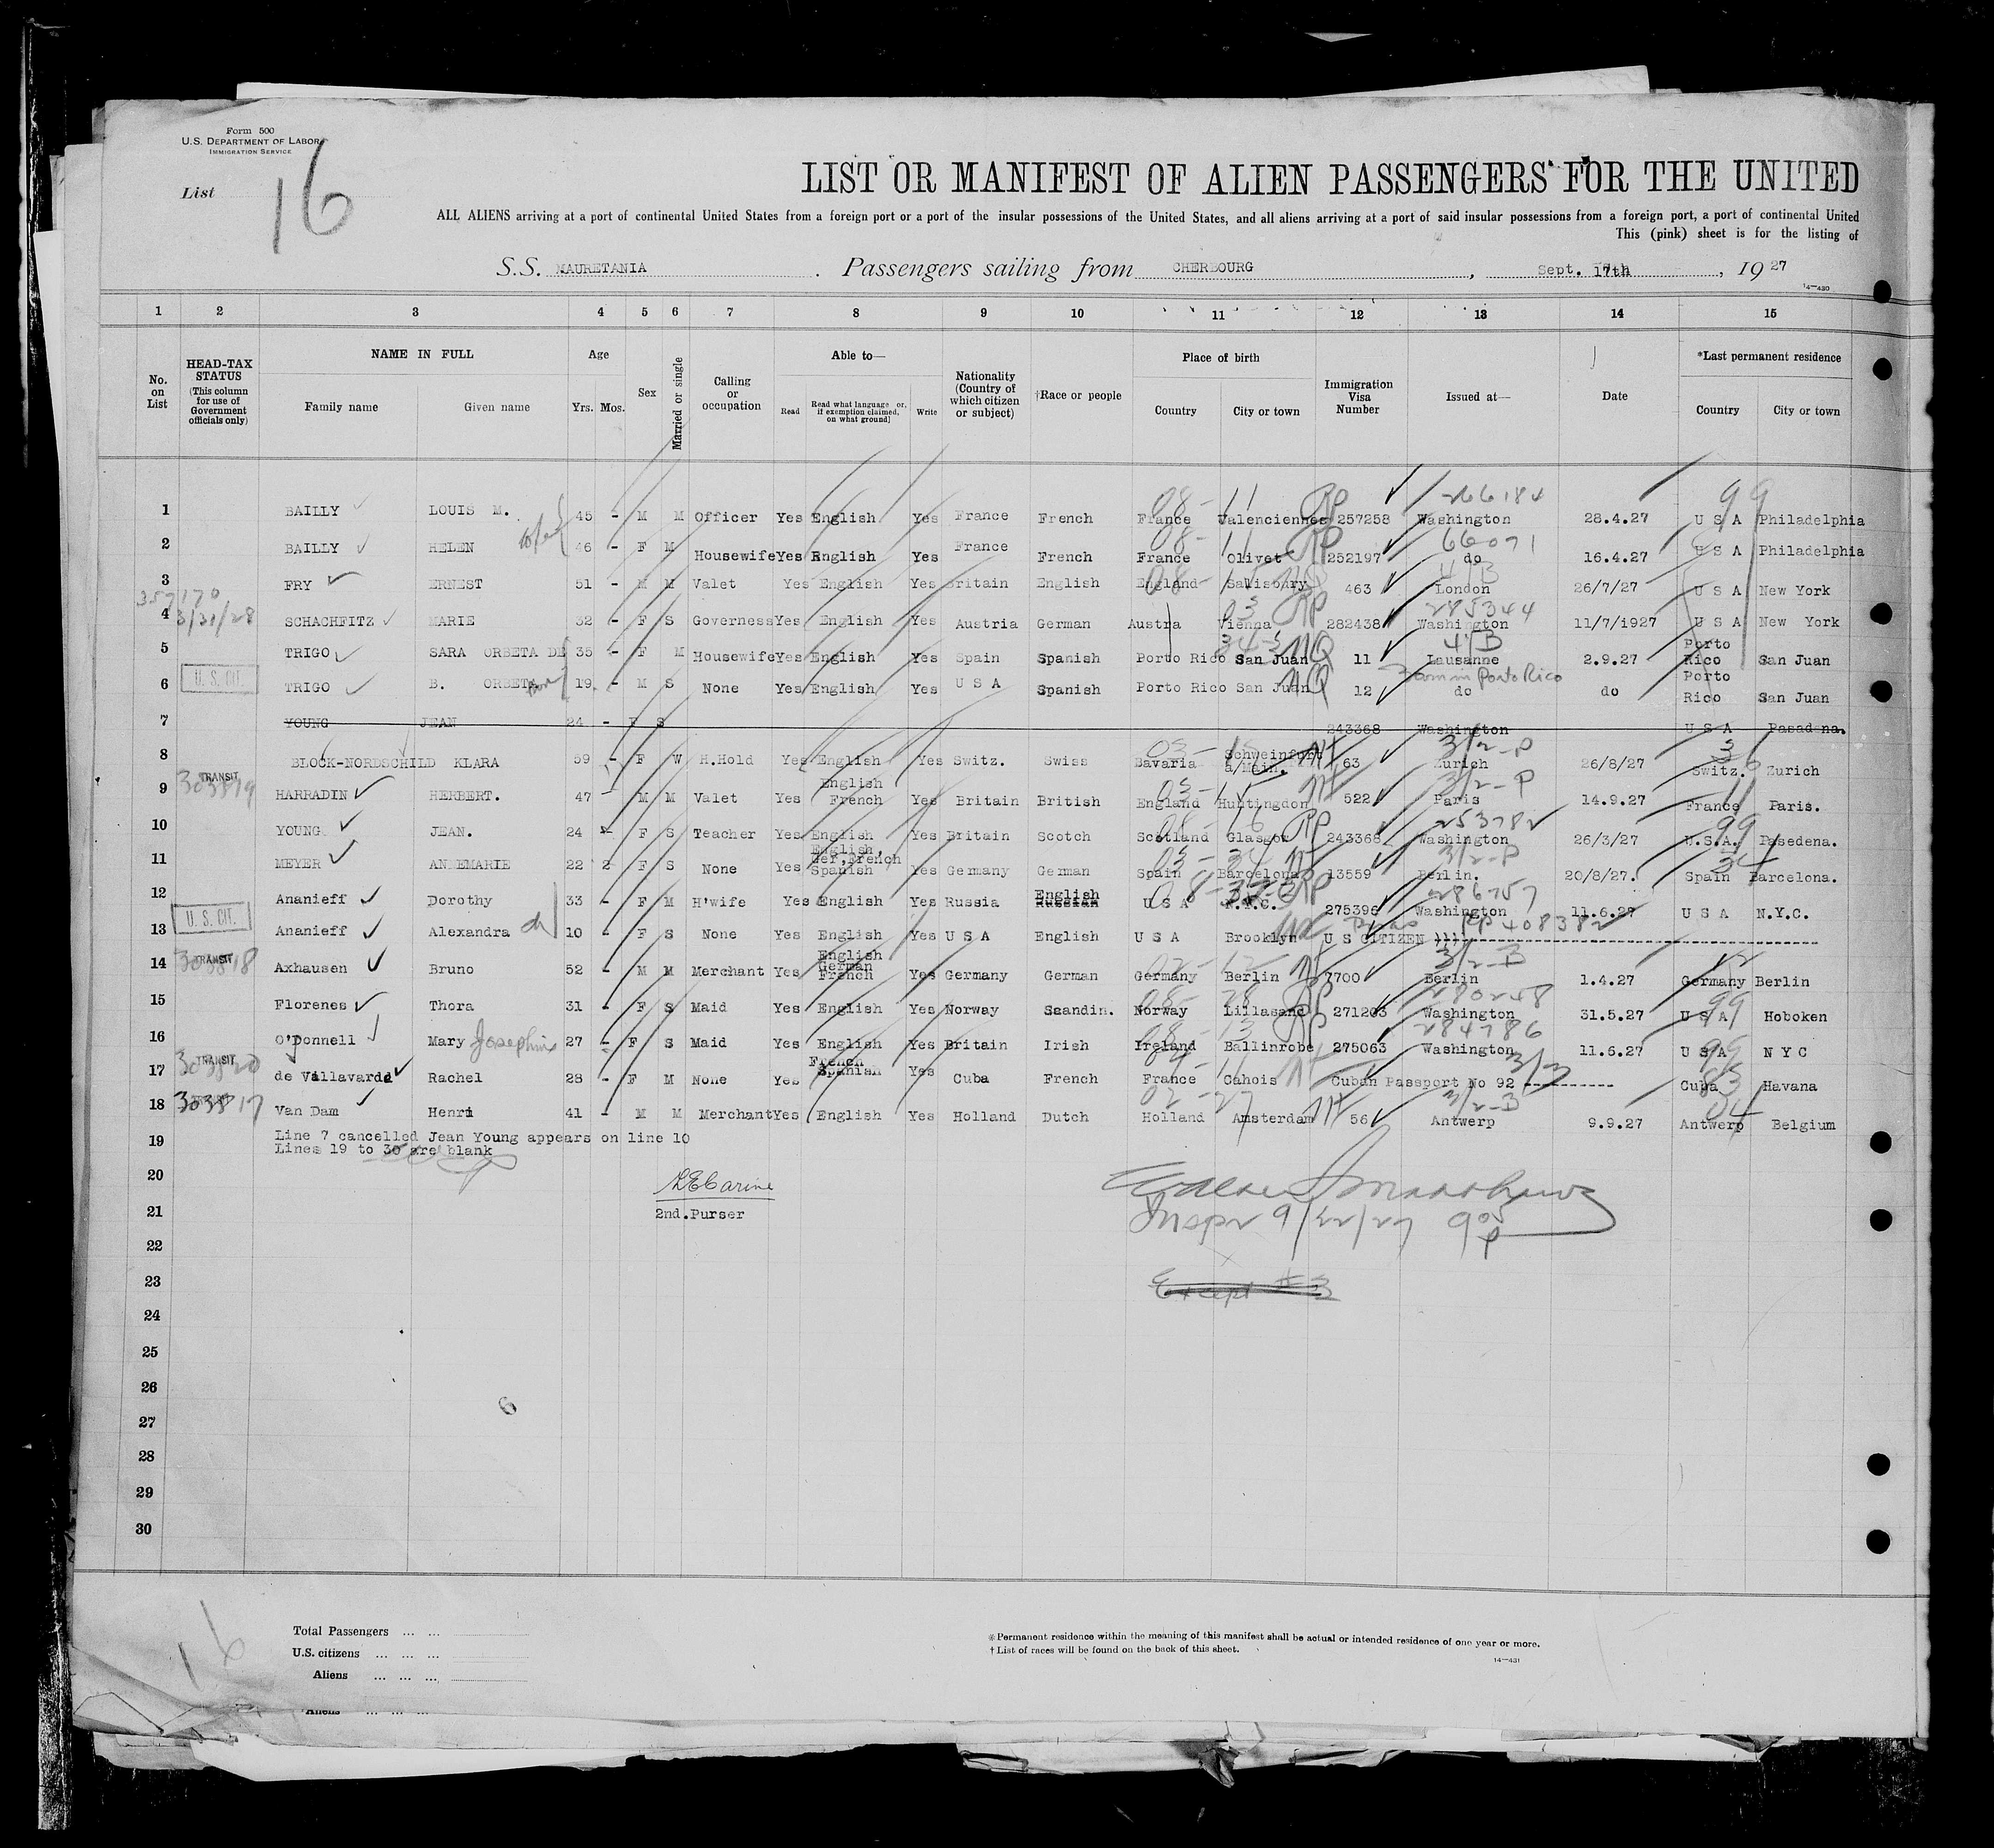 Form 500
U.S. DEPARTMENT OF LABOR
IMMIGRATION SERVICE
List 16
LIST OR MANIFEST OF ALIEN PASSENGERS FOR THE UNITED
ALL ALIENS arriving at a port of continental United States from a foreign port or a port of the insular possessions of the United States, and all aliens arriving at a port of said insular possessions from a foreign port, a port of continental United
This (pink) sheet is for the listing of
S.S. MAURETANIA. Passengers sailing from CHERBOURG, Sept. 17th, 1927
14—430
1 2 3 4 5 6 7 8 9 10 11 12 13 14 15
No. on List
HEAD-TAX STATUS (This column for use of Government officials only)
NAME IN FULL
Family name Given name
Age
Yrs. Mos.
Sex
Married or single
Calling or occupation
Able to—
Read Read what language [or, if exemption claimed, on what ground] Write
Nationality (Country of which citizen or subject)
†Race or people
Place of birth
Country City or town
Immigration Visa Number
Issued at—
Date
*Last permanent residence
Country City or town
08- 11 RP 266184 99
1 BAILLY LOUIS M. 45 - M M Officer Yes English Yes France French France Valenciennes 257258 Washington 28.4.27 U S A Philadelphia
08- 11 RP 66071
2 BAILLY HELEN 46 - F M Housewife Yes English Yes France French France Olivet 252197 do 16.4.27 U S A Philadelphia
3 FRY ERNEST 51 - M M Valet Yes English Yes Britain English England Salisbury 463 London 26/7/27 U S A New York
357170
3/31/28 03 RP 285344
4 SCHACHFITZ MARIE 32 - F S Governess Yes English Yes Austria German Austra Vienna 282438 Washington 11/7/1927 U S A New York
NQ 4B
5 TRIGO SARA ORBETA DE 35 - F M Housewife Yes English Yes Spain Spanish Porto Rico San Juan 11 Lausanne 2.9.27 Porto Rico San Juan
U. S. CIT. Porto Rico
6 TRIGO B. ORBETA 19 - M S None Yes English Yes U S A Spanish Porto Rico San Juan NQ 12 do do Porto Rico San Juan
7 YOUNG JEAN 24 - F S 243368 Washington U S A Pasadena.
3/2-P
8 BLOCK-NORDSCHILD KLARA 59 - F W H.Hold Yes English Yes Switz. Swiss Bavaria Schweinfurt a/Main. 63 Zurich 26/8/27 Switz. Zurich
TRANSIT 303819 3/2-P
9 HARRADIN HERBERT. 47 - M M Valet Yes English French Yes Britain British England Huntingdon 522 Paris 14.9.27 France Paris.
08- 16 RP 253782 99
10 YOUNG JEAN. 24 - F S Teacher Yes English Yes Britain Scotch Scotland Glasgow 243368 Washington 26/3/27 U.S.A. Pasedena.
3/2-P
11 MEYER ANNEMARIE 22 2 F S None Yes English, Ger,French Spanish Yes Germany German Spain Barcelona 13559 Berlin. 20/8/27. Spain Barcelona.
RP 286757
12 Ananieff Dorothy 33 - F M H'wife Yes English Yes Russia English Russian U S A N.Y.C. 275396 Washington 11.6.27 U S A N.Y.C.
U. S. CIT. PP 408382
13 Ananieff Alexandra 10 - F S None Yes English Yes U S A English U S A Brooklyn U S CITIZEN ))))--------------------
TRANSIT 303818 3/2-B
14 Axhausen Bruno 52 - M M Merchant Yes English German French Yes Germany German Germany Berlin 7700 Berlin 1.4.27 Germany Berlin
08- 28 RP 280248 99
15 Florenes Thora 31 - F S Maid Yes English Yes Norway Scandin. Norway Lillasand 271203 Washington 31.5.27 U S A Hoboken
08- 13 RP 284786 99
16 O'Donnell Mary Josephine 27 - F S Maid Yes English Yes Britain Irish Ireland Ballinrobe 275063 Washington 11.6.27 U S A N Y C
TRANSIT 303820 3/3 83
17 de Villavarde Rachel 28 - F M None Yes French Spanish Yes Cuba French France Cahois Cuban Passport No 92 ---------- Cuba Havana
303817 02-27 3/2-B 04
18 Van Dam Henri 41 - M M Merchant Yes English Yes Holland Dutch Holland Amsterdam 56 Antwerp 9.9.27 Antwerp Belgium
19 Line 7 cancelled Jean Young appears on line 10
Lines 19 to 30 are blank
20
21 2nd.Purser
Inspr 9/22/27 9 05 P
22
23 Except #3
24
25
26
27
28
29
30
16
Total Passengers ... ...
U.S. citizens ... ... ...
Aliens ... ... ...
Aliens ... ... ...
*Permanent residence within the meaning of this manifest shall be actual or intended residence of one year or more.
†List of races will be found on the back of this sheet.
14—431